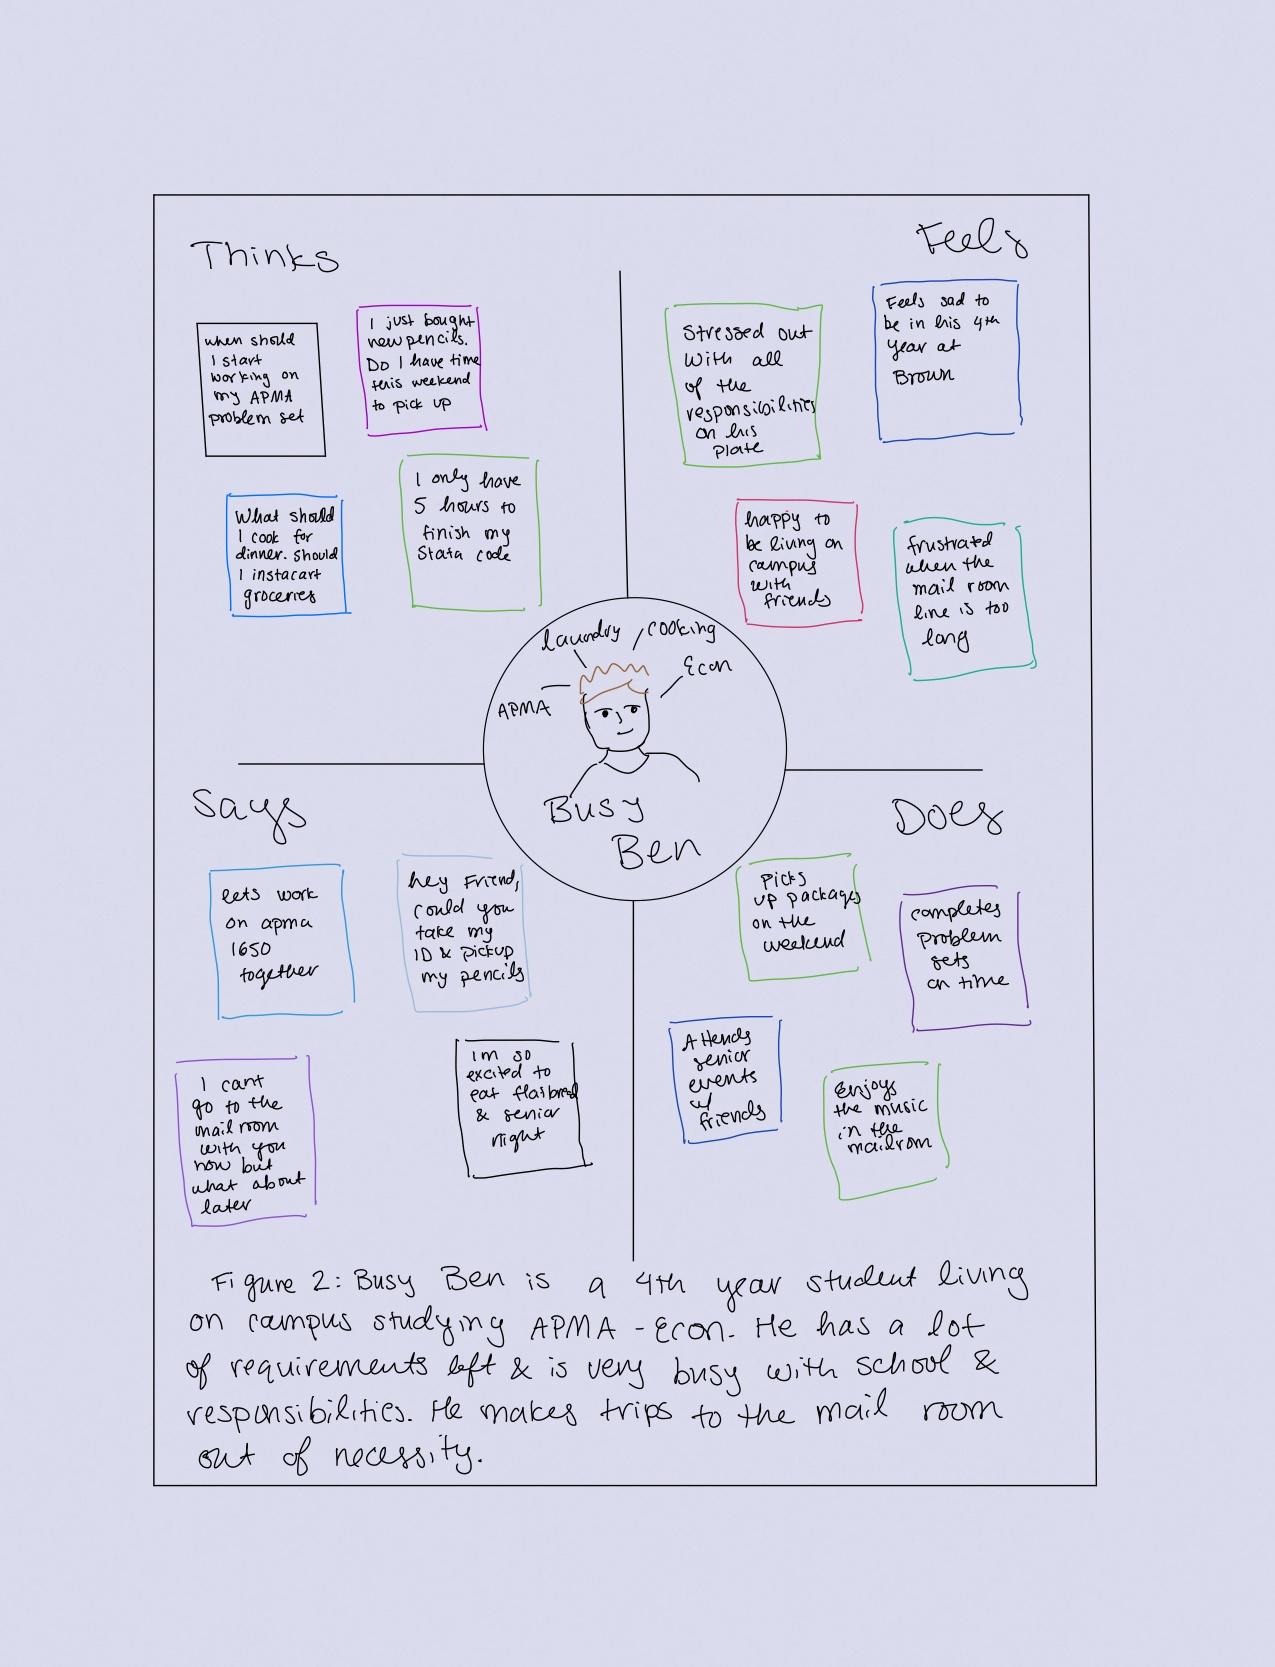 Thinks
when should
I start
working on
my APMA
problem set
I just bought
new pencils.
Do I have time
this weekend
to pick up
What should
I cook for
dinner. should
I instacart
groceries
I only have
5 hours to
finish my
Stata code
Feels
Stressed out
with all
of the
responsibilities
on his
plate
Feels sad to
be in his 4th
year at
Brown
happy to
be living on
campus
with
friends
frustrated
when the
mail room
line is too
long
laundry
cooking
Econ
APMA
Busy
Ben
Says
lets work
on apma
1650
together
hey Friend,
could you
take my
ID & pickup
my pencils
I cant
go to the
mail room
with you
now but
what about
later
im so
excited to
eat flatbread
& senior
night
Does
Picks
up packages
on the
weekend
completes
problem
sets
on time
Attends
senior
events
w/
friends
Enjoys
the music
in the
mailrom
Figure 2: Busy Ben is a 4th year student living
on campus studying APMA - Econ. He has a lot
of requirements left & is very busy with school &
responsibilities. He makes trips to the mail room
out of necessity.